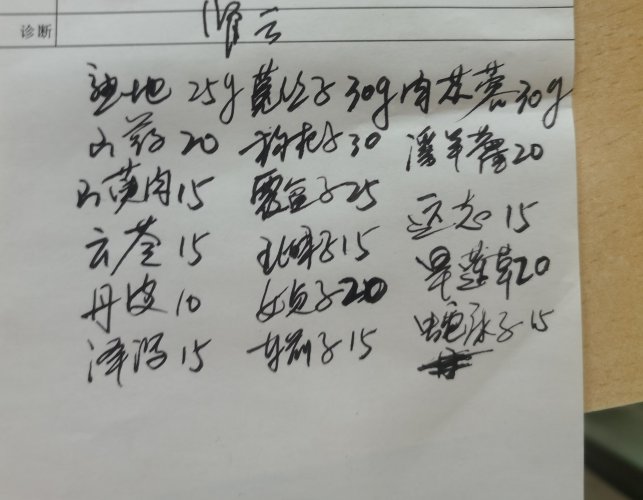 诊断 肾亏
熟地 25g 菟丝子 30g 肉苁蓉 30g
山药 20 枸杞子 30 淫羊藿 20
山萸肉 15 覆盆子 25
云苓 15 五味子 15 远志 15
丹皮 10 女贞子 20 旱莲草 20
泽泻 15 车前子 15 蛇床子 15